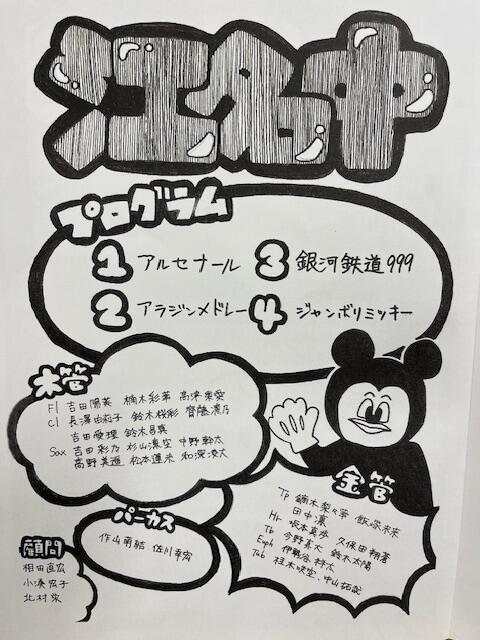 江名中
プログラム
1 アルセナール
2 アラジンメドレー
3 銀河鉄道999
4 ジャンボリミッキー
木管
Fl 吉田陽英 楠木彩華
Cl 長澤由莉子 鈴木桜彩 齊藤凛乃
吉田愛理 鈴木
Sax 吉田彩乃 杉山凛空 中野幹太
高野美遥 松本蓮未 和深湊大
パーカス
作山南結 佐川幸
顧問
相田直広
小湊
北村
金管
Tp 鏑木梨々華 飯塚未来
田中凛
Hr 坂本真歩 久保田翔蒼
Tb 今野真大 鈴木太陽
Euph 伊勢谷梓太
Tub 柱木咲空 中山拓哉